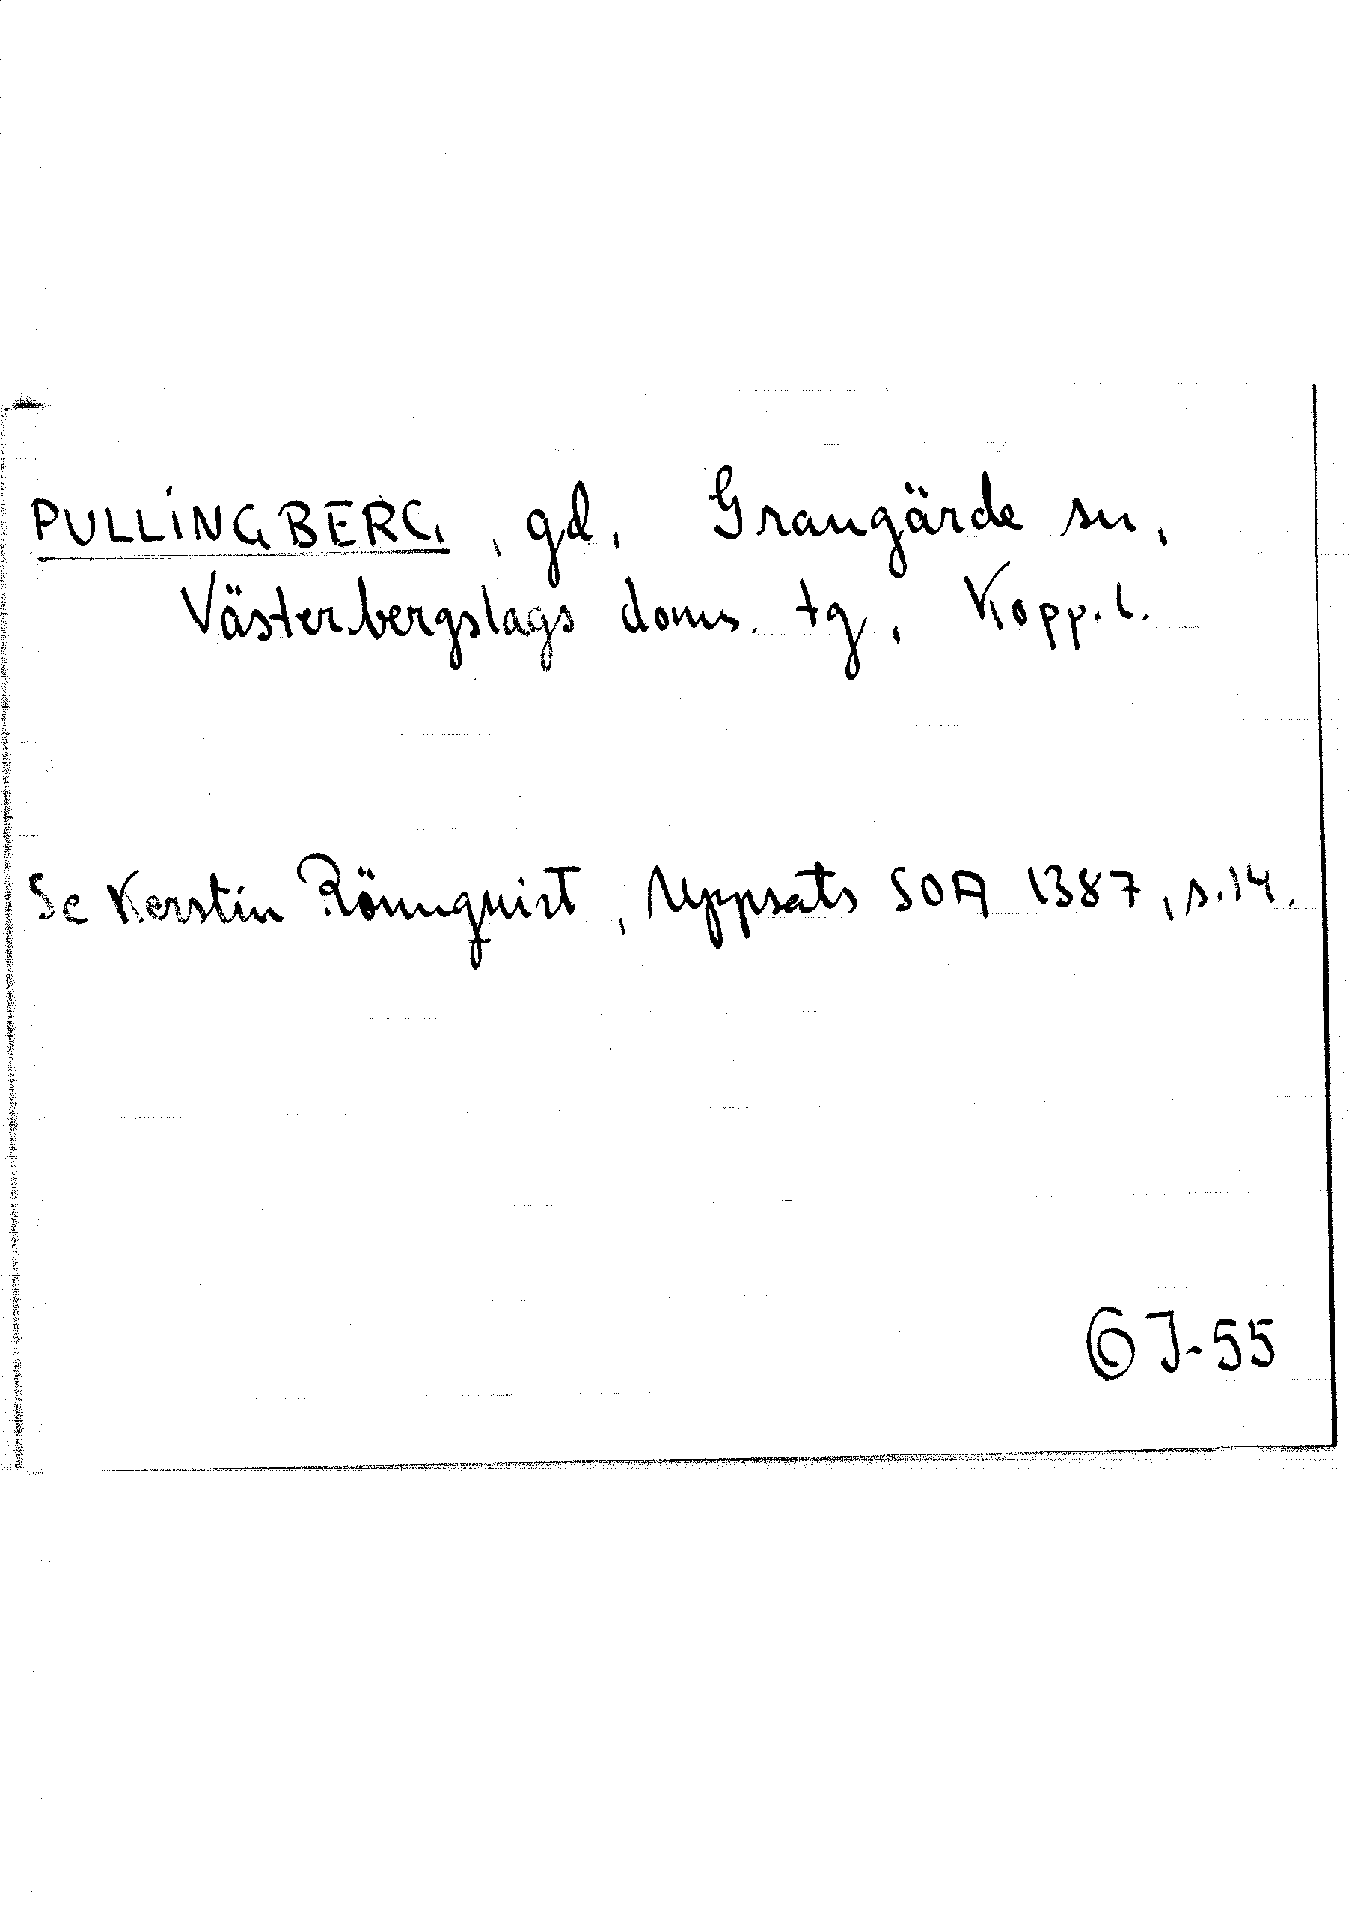 PULLINGBERG, gd, Grangärde sn,
Västerbergslags doms. tg, Kopp. l.
Se Kerstin Rönnquist, Uppsats SOA 1387, s. 14.
GJ-55